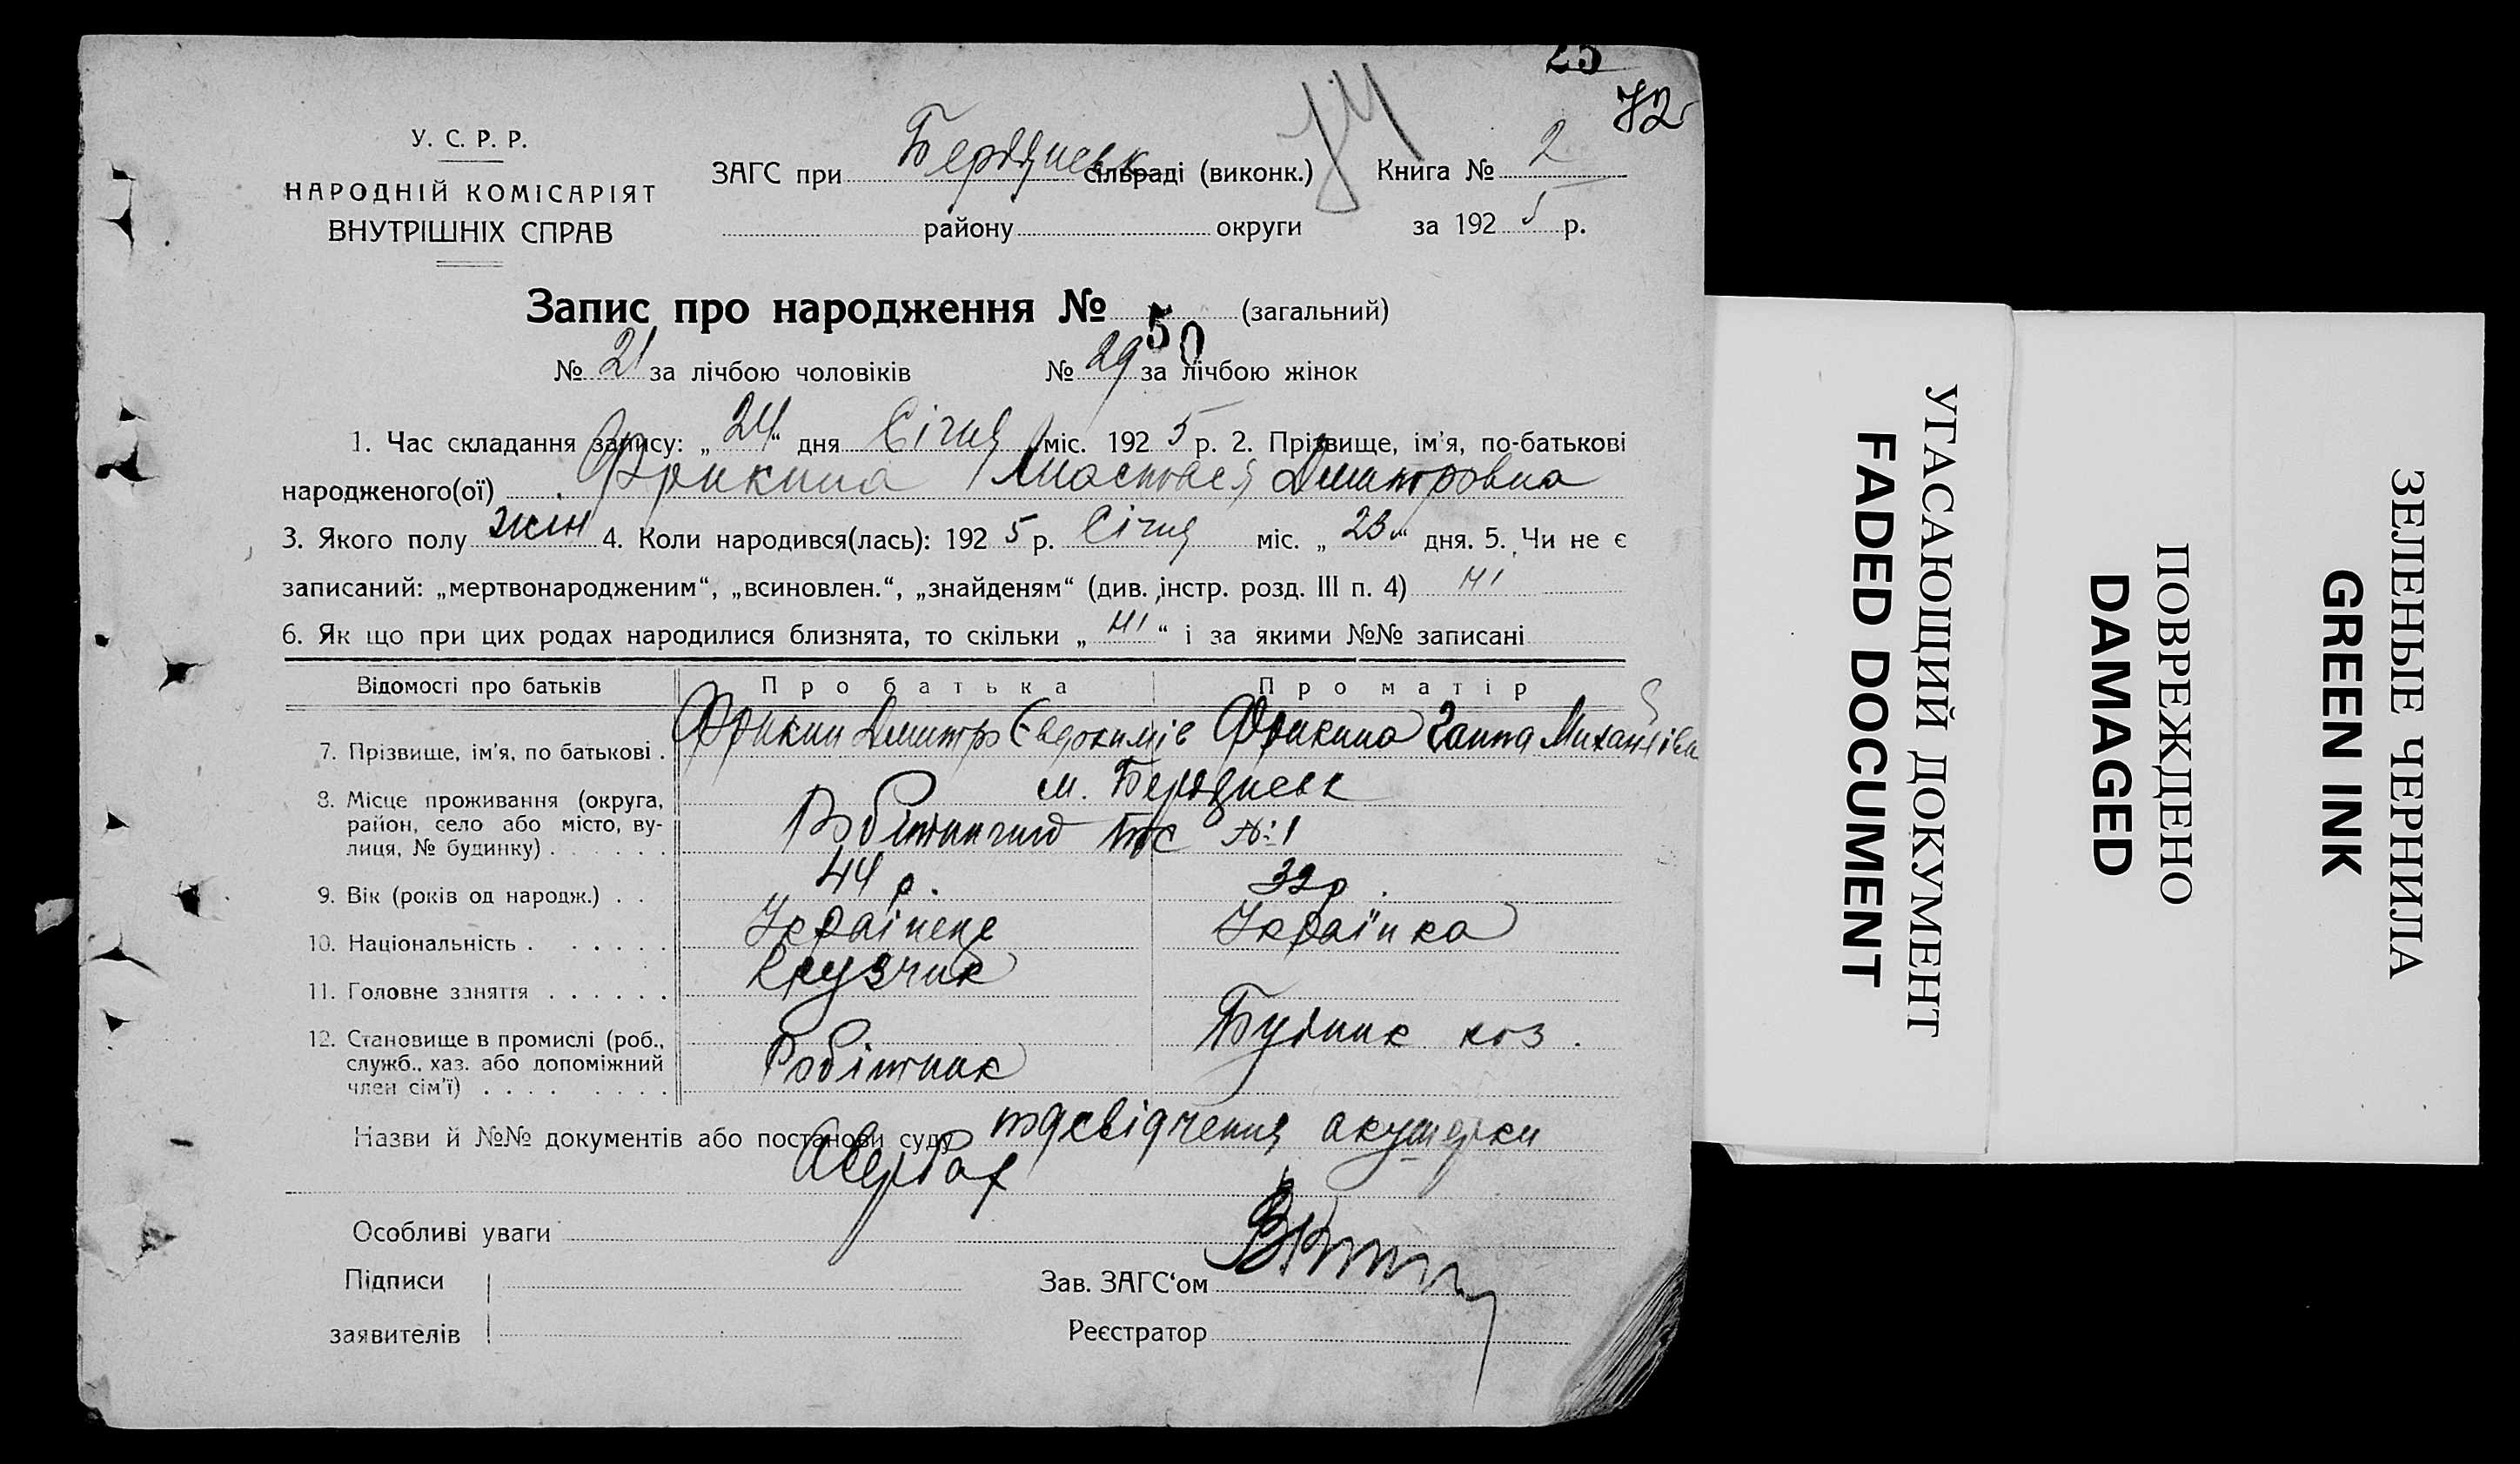 25
72
У. С. Р. Р.
НАРОДНІЙ КОМІСАРІЯТ
ВНУТРІШНІХ СПРАВ
ЗАГС при Бердянськ сільраді (виконк.) Книга № 2
району округи за 192 5 р.
Запис про народження № 50 (загальний)
№ 21 за лічбою чоловіків № 29 за лічбою жінок
1. Час складання запису: „ 24 “ дня Січня міс. 192 5 р. 2. Прізвище, ім’я, по-батькові
народженого(ої) Фрикина Анастасія Дмитровна
3. Якого полу жін 4. Коли народився(лась): 192 5 р. Січня міс. „ 23 “ дня. 5. Чи не є
записаний: „мертвонародженим“, „всиновлен.“, „знайденям“ (див. інстр. розд. III п. 4) ні
6. Як що при цих родах народилися близнята, то скільки „ ні “ і за якими №№ записані
Відомості про батьків Про батька Про матір
7. Прізвище, ім’я, по батькові . Фрикин Дмитро Євдокимів Фрикина Ганна Михайлівн
8. Місце проживання (округа, район, село або місто, вулиця, № будинку) . . . . . . м. Бердянськ
№ 1
9. Вік (років од народж.) . . 44 р. 32 р.
10. Національність . . . . . . Українець Українка
11. Головне заняття . . . . . .
12. Становище в промислі (роб., служб., хаз. або допоміжний член сім’ї) . . . . . . . . Робітник
Назви й №№ документів або постанови суду посвідчення акушерки
Авербах
Особливі уваги
Підписи
заявителів
Зав. ЗАГС‘ом
Реєстратор
УГАСАЮЩИЙ ДОКУМЕНТ
FADED DOCUMENT
ПОВРЕЖДЕНО
DAMAGED
ЗЕЛЕНЫЕ ЧЕРНИЛА
GREEN INK